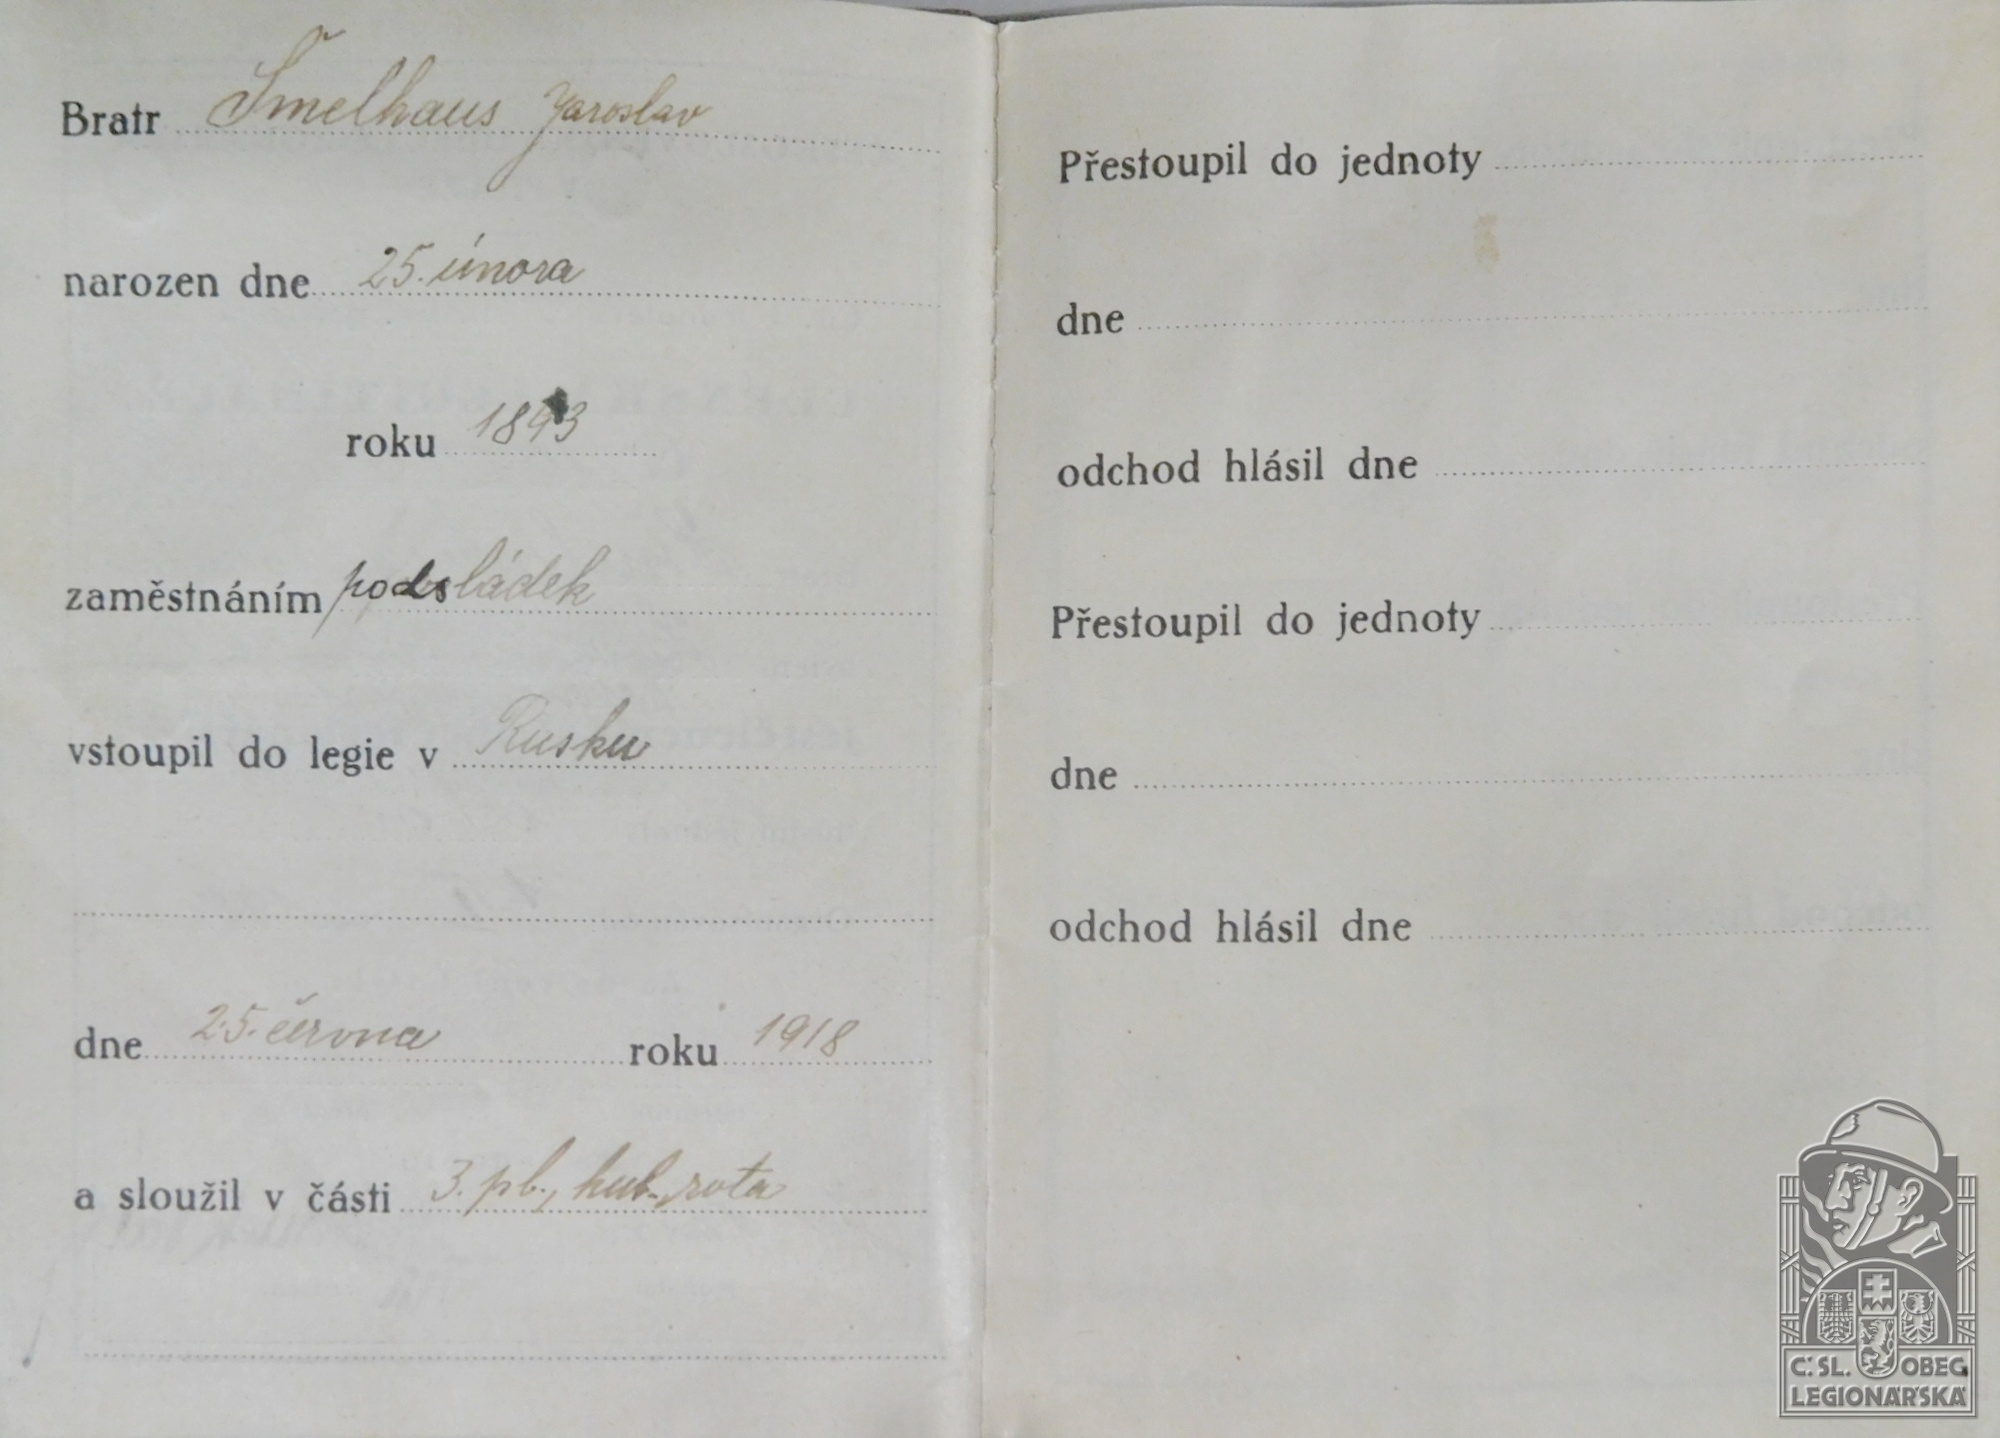 Bratr Šmelhaus Jaroslav
narozen dne 25. února
roku 1893
zaměstnáním podsládek
vstoupil do legie v Rusku
dne 25. června roku 1918
a sloužil v části 3. pl., kul. rota
Přestoupil do jednoty
dne
odchod hlásil dne
Přestoupil do jednoty
dne
odchod hlásil dne
Č. SL. OBEC
LEGIONÁŘSKÁ